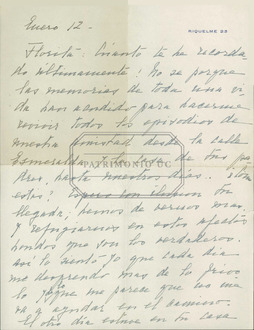 RIQUELME 25
Enero 12.-
Florita: Cuanto te he recorda
do últimamente! No se porque
las memorias de toda una vi
da han acudido para hacerme
revivir todos los episodios de
nuestra amistad desde la calle
Esmeralda,
dres, hasta nuestros días.
estás? Espero con ilusion tu
llegada; hemos de vernos mas,
y refugiarnos en estos afectos
hondos que son los verdaderos.
asi lo siento yo que cada dia
me desprendo mas de lo frivo
lo y que me parece que las me
va a ayudar en el camino.
El otro dia estuve en tu casa
PATRIMONIO UC